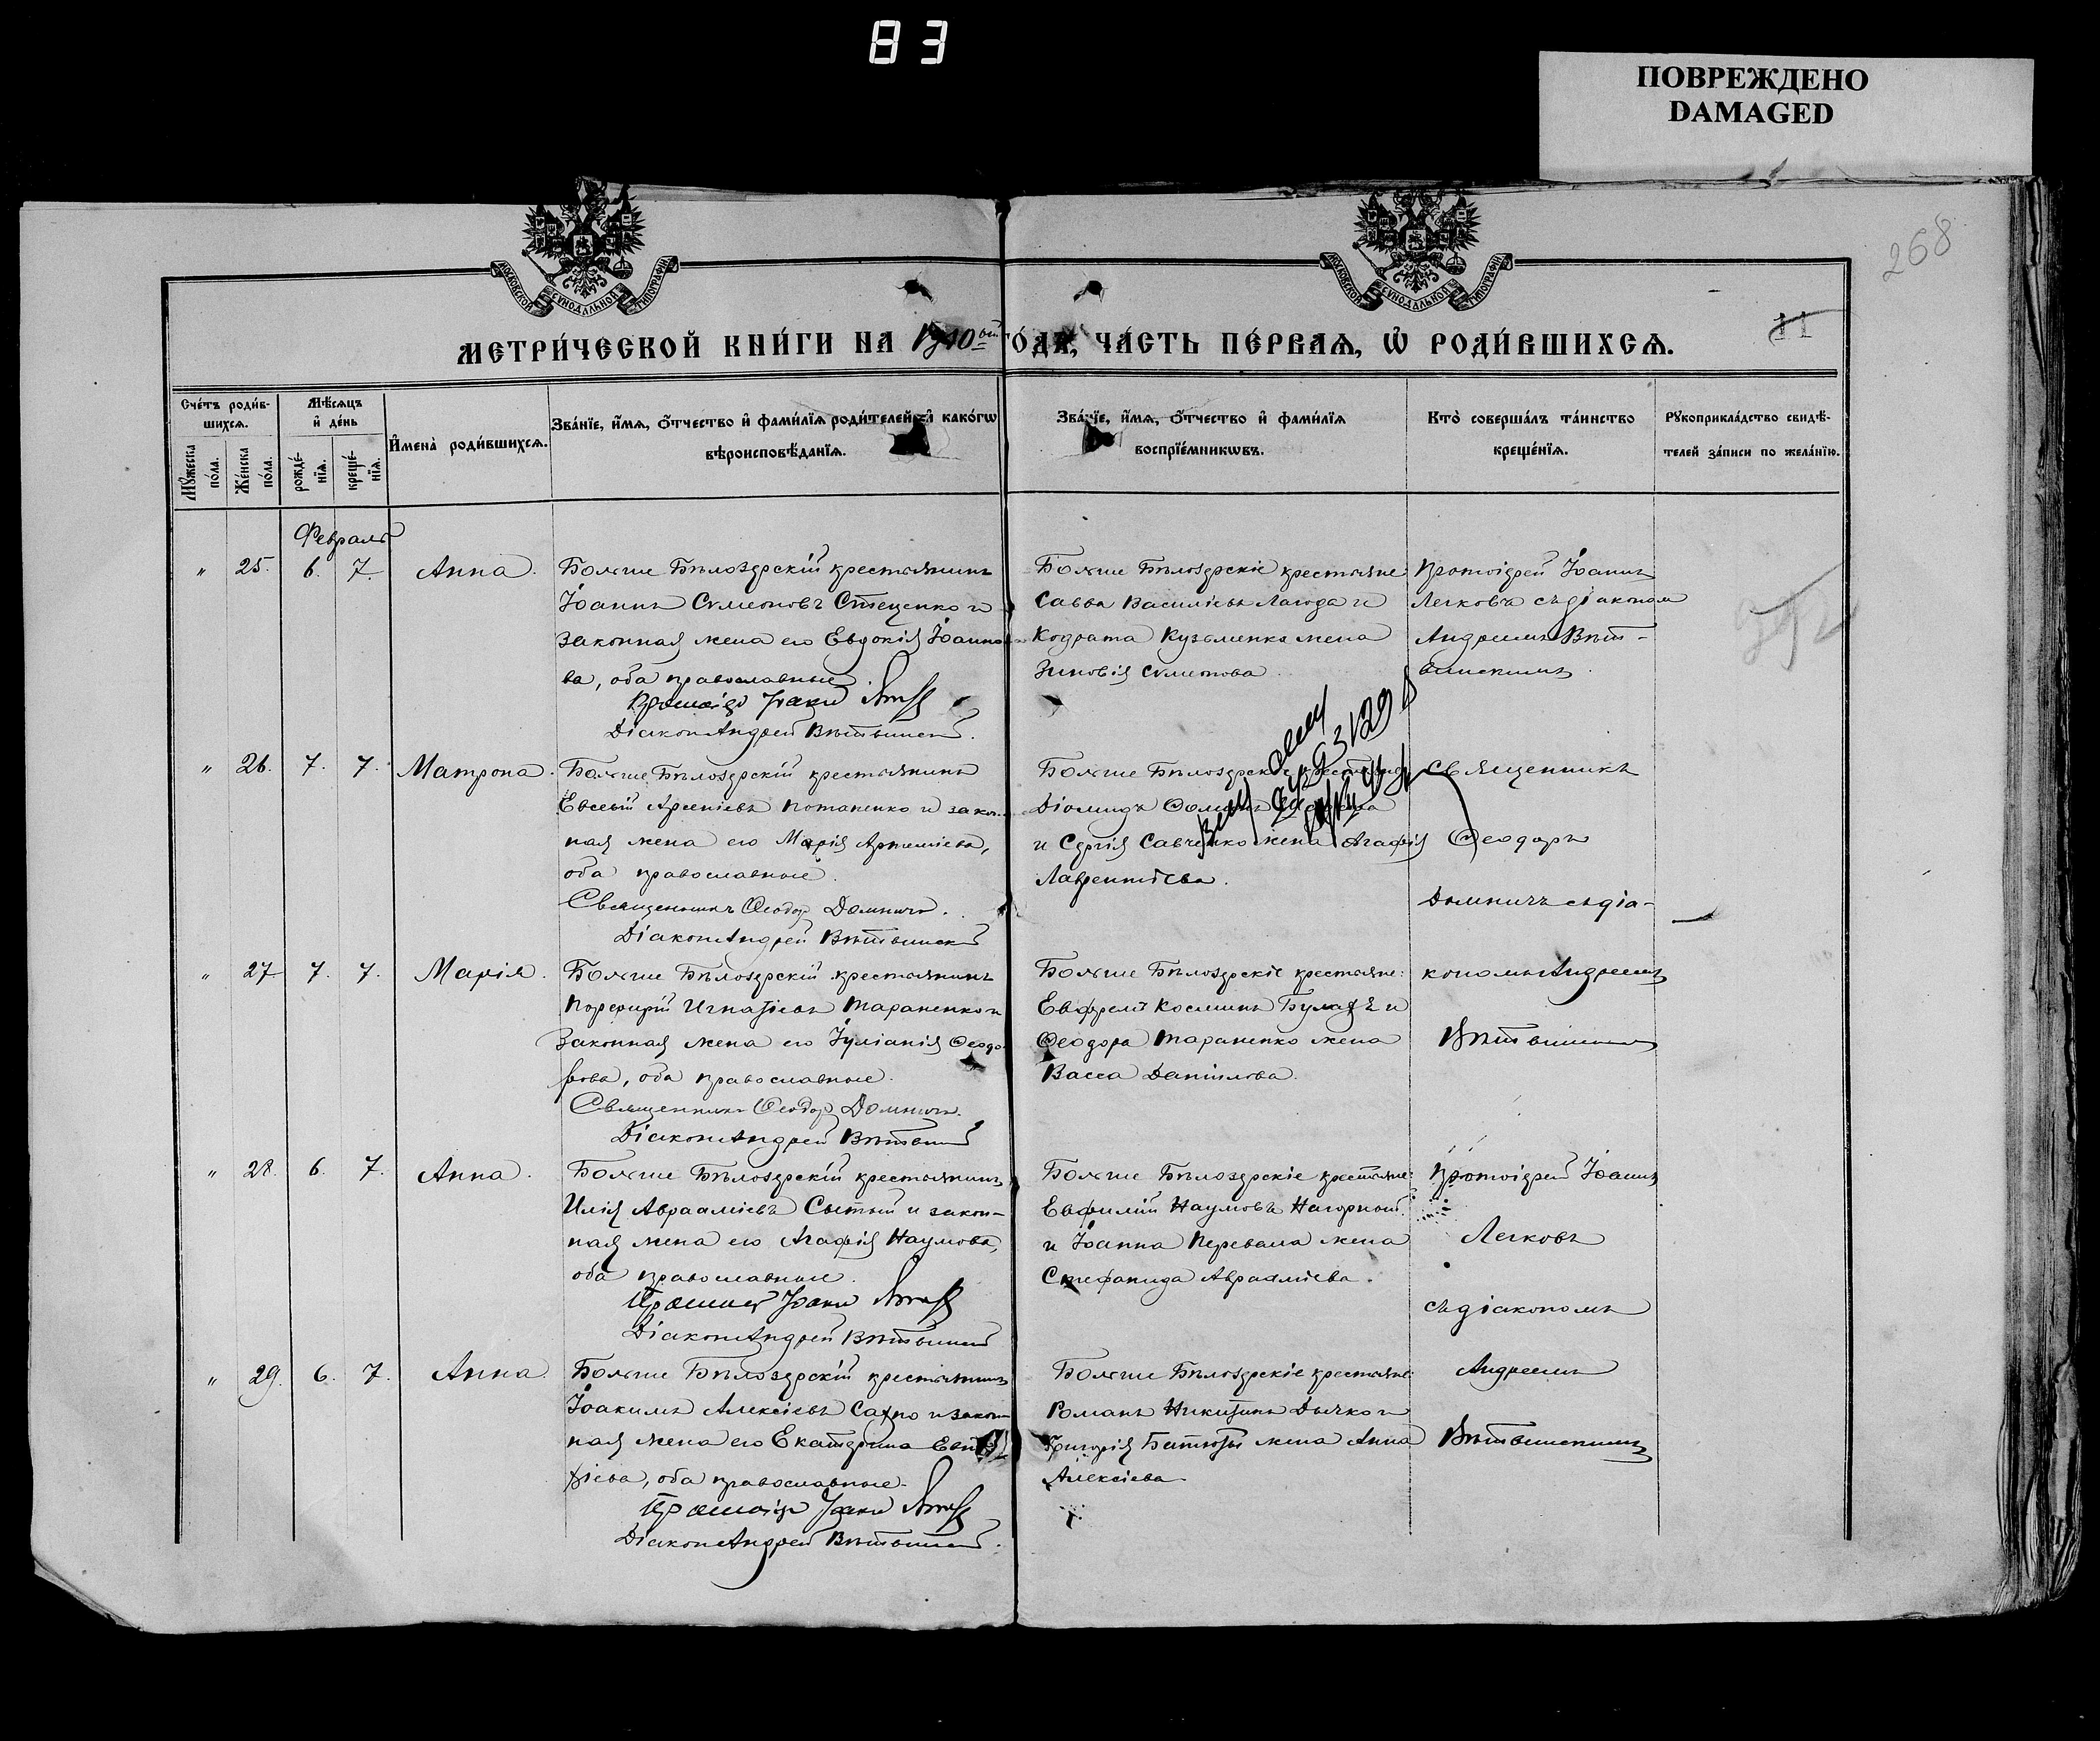 83
ПОВРЕЖДЕНО
DAMAGED
268
МОСКОВСКОЙ СѴНОДАЛЬНОЙ ТИПОГРАФІИ
МОСКОВСКОЙ СѴНОДАЛЬНОЙ ТИПОГРАФІИ
МЕТРИ́ЧЕСКОЙ КНИ́ГИ НА 1910ый ГО́ДЪ, ЧА́СТЬ ПЕ́РВАѦ, Ѡ҆ РОДИ́ВШИХСѦ.
11
Сче́тъ роди́в-
шихсѧ.
Мꙋ́жеска по́ла.
Же́нска по́ла.
Мѣ́сѧцъ и҆ де́нь
рожде́-
нїѧ.
креще́-
нїѧ.
И҆мена̀ роди́вшихсѧ.
Зва́нїе, и҆́мѧ, ѻ҆́тчество и҆ фами́лїѧ роди́телей, и҆ како́гѡ
вѣроисповѣ́данїѧ.
Зва́нїе, и҆́мѧ, ѻ҆́тчество и҆ фами́лїѧ
воспрїе́мникѡвъ.
Кто̀ соверша́лъ та́инство
креще́нїѧ.
Рꙋкоприкла́дство свидѣ́-
телей за́писи по жела́нїю.
Февраль
" 25. 6. 7. Анна.
Больше Бѣлозерскій крестьянинъ
Іоаннъ Сумеоновъ Стеценко и
законная жена его Евдокія Іоанно-
ва, оба православные.
Протоіер Іоанн
Діаконъ Андрей Вѣтвинскій.
Больше Бѣлозерскіе крестьяне:
Савва Василіевъ Лагода и
Кодрата Кузьменка жена
Зиновія Сумеонова.
Протоіерей Іоаннъ
Легковъ съ діакономъ
Андреемъ Вѣт-
винскимъ.
" 26. 7. 7. Матрона.
Больше Бѣлозерскій крестьянинъ
Евсевій Арсеніевъ Потапенко и закон-
ная жена его Марія Артеміева,
оба православные.
Священникъ Ѳеодоръ Домничъ.
Діаконъ Андрей Вѣтвинскій
Больше Бѣлозерскіе крестьяне
Діомидъ Ѳоминъ
и Сергія Савченко жена Агафія
Лаврентіева.
Священникъ
Ѳеодоръ
Домничъ съ діа-
" 27 7. 7. Марія.
Больше Бѣлозерскій крестьянинъ
Порфирій Игнатіевъ Тараненко и
Законная жена его Іуліанія Ѳеодо-
рова, оба православные.
Священникъ Ѳеодоръ Домничъ.
Діаконъ Андрей Вѣтвинскій
Больше Бѣлозерскіе крестьяне:
Евфремъ Косминъ Булахъ и
Ѳеодора Тараненко жена
Васса Даніилова.
кономъ Андреемъ
Вѣтвинскимъ
" 28. 6. 7. Анна.
Больше Бѣлозерскій крестьянинъ
Илія Авраамiевъ Сытый и закон-
ная жена его Агафія Наумова,
оба православные.
Протоіер Іоанн
Діаконъ Андрей Вѣтвинскій
Больше Бѣлозерскіе крестьяне:
Евфимій Наумовъ Нагорный
и Іоанна Перевала жена
Стефанида Авраамiева.
Протоіерей Іоаннъ
Легковъ
съ діакономъ
" 29. 6. 7. Анна.
Больше Бѣлозерскій крестьянинъ
Іоакимъ Алексіевъ Сахно и закон-
ная жена его Екатерина
оба православные.
Протоіер Іоанн
Діаконъ Андрей Вѣтвинскій.
Больше Бѣлозерскіе крестьяне:
Романъ Никитинъ Дычко и
Григорія жена Анна
Алексіева.
Андреемъ
Вѣтвинскимъ